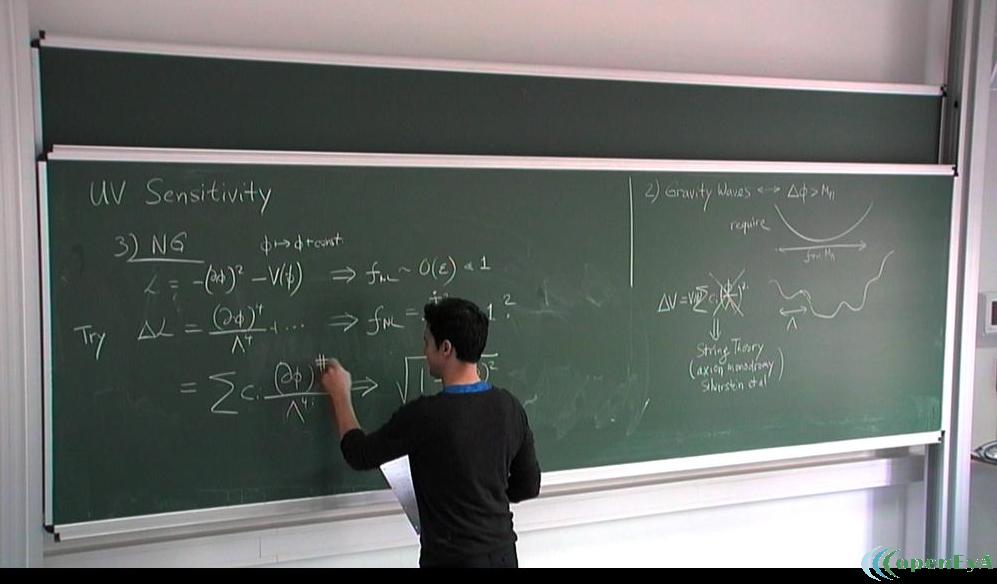 UV Sensitivity
3) NG
ϕ ↦ ϕ + const
ℒ = -(∂ϕ)² - V(ϕ) ⇒ f_NL ~ O(ε) < 1
Try Δℒ = (∂ϕ)⁴ / Λ⁴ + ... ⇒ f_NL = 1 ?
= Σ cᵢ (∂ϕ)^# / Λ⁴ ⇒ √1 )²
2) Gravity Waves ↔ Δϕ > M_pl
require
ΔV = V Σ cᵢ
Λ
⇓
String Theory
(axion monodromy)
Silverstein et al
openEyA